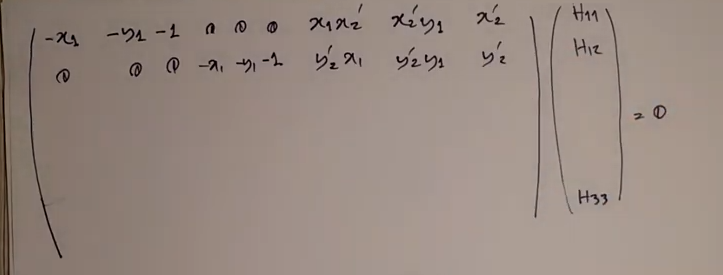 -x₁ -y₁ -1 0 0 0 x₁x₂′ x₂′y₁ x₂′ H₁₁
0 0 0 -x₁ -y₁ -1 y₂′x₁ y₂′y₁ y₂′ H₁₂
= 0
H₃₃